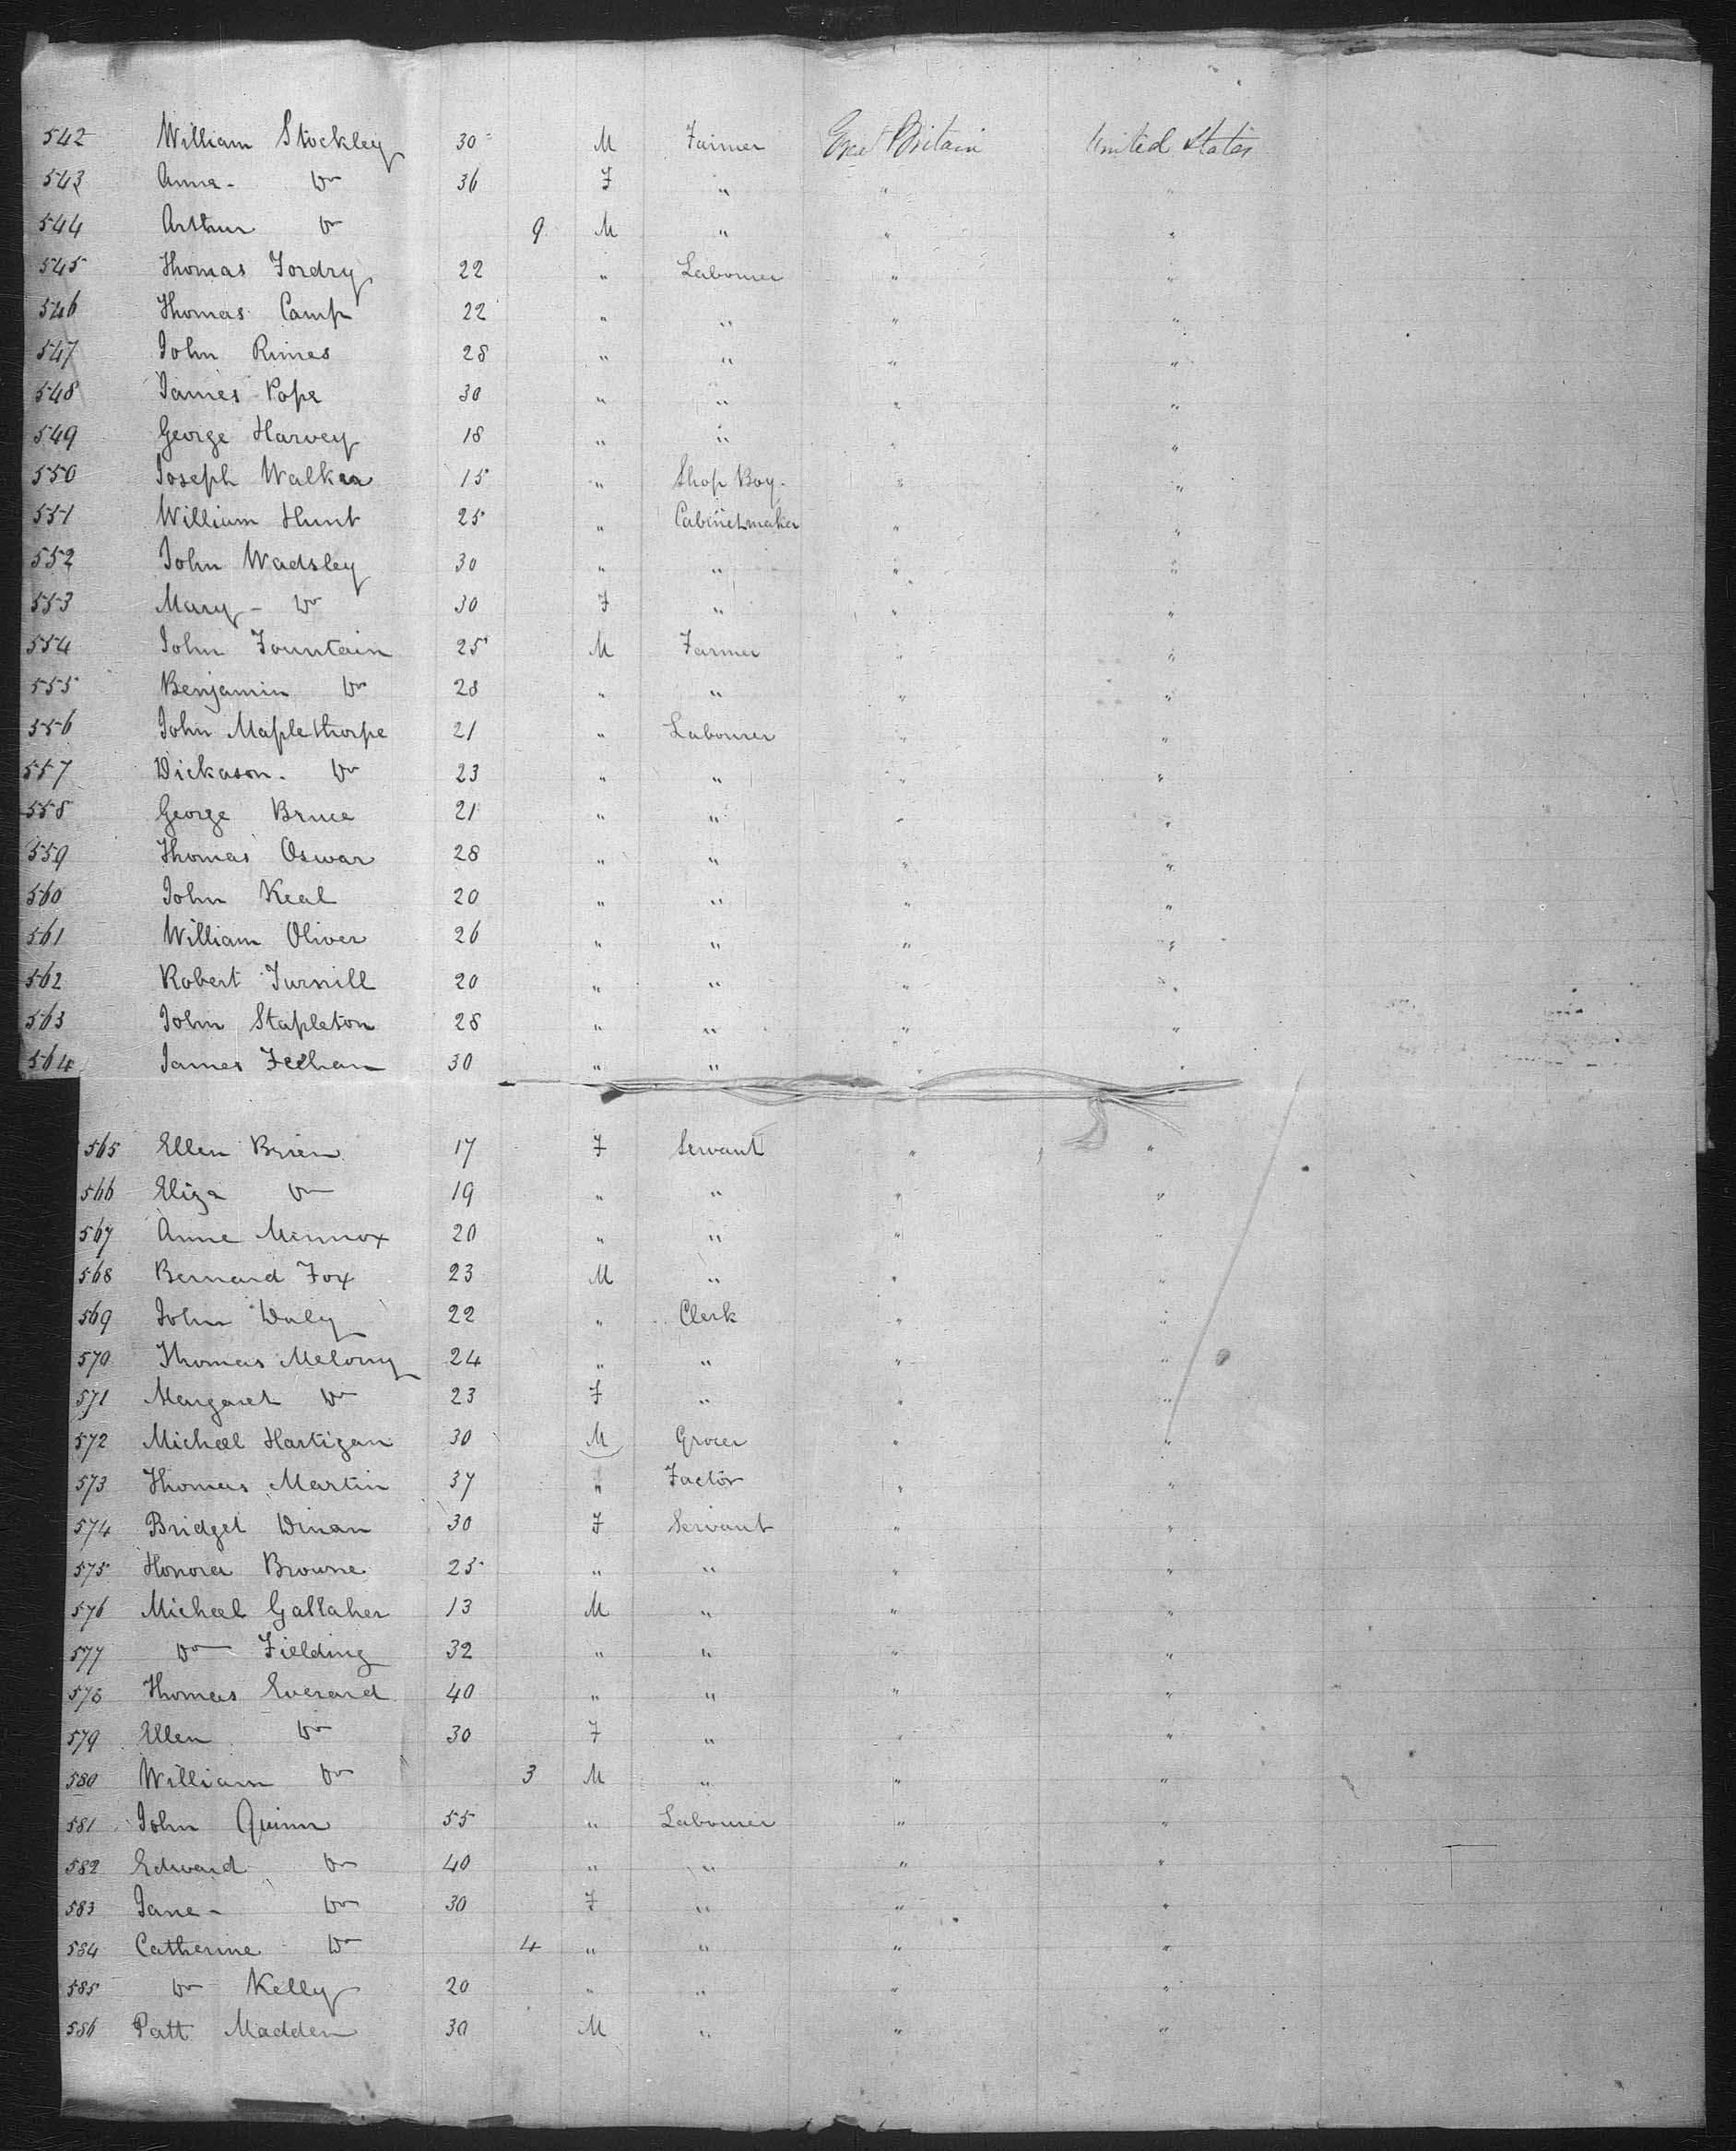 542 William Stockley 30 M Farmer Great Britain United States
543 Anna - Do 36 F " " "
544 Arthur Do 9 M " " "
545 Thomas Fordry 22 " Labourer " "
546 Thomas Camp 22 " " " "
547 John Rimes 28 " " " "
548 James Pope 30 " " " "
549 George Harvey 18 " " " "
550 Joseph Walker 15 " Shop Boy " "
551 William Hunt 25 " Cabinetmaker " "
552 John Wadsley 30 " " " "
553 Mary - Do 30 F " " "
554 John Fountain 25 M Farmer " "
555 Benjamin Do 28 " " " "
556 John Maplethorpe 21 " Labourer " "
557 Dickason - Do 23 " " " "
558 George Bruce 21 " " " "
559 Thomas Oswar 28 " " " "
560 John Keal 20 " " " "
561 William Oliver 26 " " " "
562 Robert Turnill 20 " " " "
563 John Stapleton 28 " " " "
564 James Feehan 30 " " " "
565 Ellen Brien 17 F Servant " "
566 Eliza Do 19 " " " "
567 Anne Mennox 20 " " " "
568 Bernard Fox 23 M " " "
569 John Daly 22 " Clerk " "
570 Thomas Melony 24 " " " "
571 Margaret Do 23 F " " "
572 Michael Hartigan 30 M Grocer " "
573 Thomas Martin 37 " Factor " "
574 Bridget Dinan 30 F Servant " "
575 Honora Browne 25 " " " "
576 Michael Gallaher 13 M " " "
577 Do Fielding 32 " " " "
578 Thomas Everard 40 " " " "
579 Ellen Do 30 F " " "
580 William Do 3 M " " "
581 John Quinn 55 " Labourer " "
582 Edward Do 40 " " " "
583 Jane - Do 30 F " " "
584 Catherine Do 4 " " " "
585 Do Kelly 20 " " " "
586 Patt Madden 30 M " " "